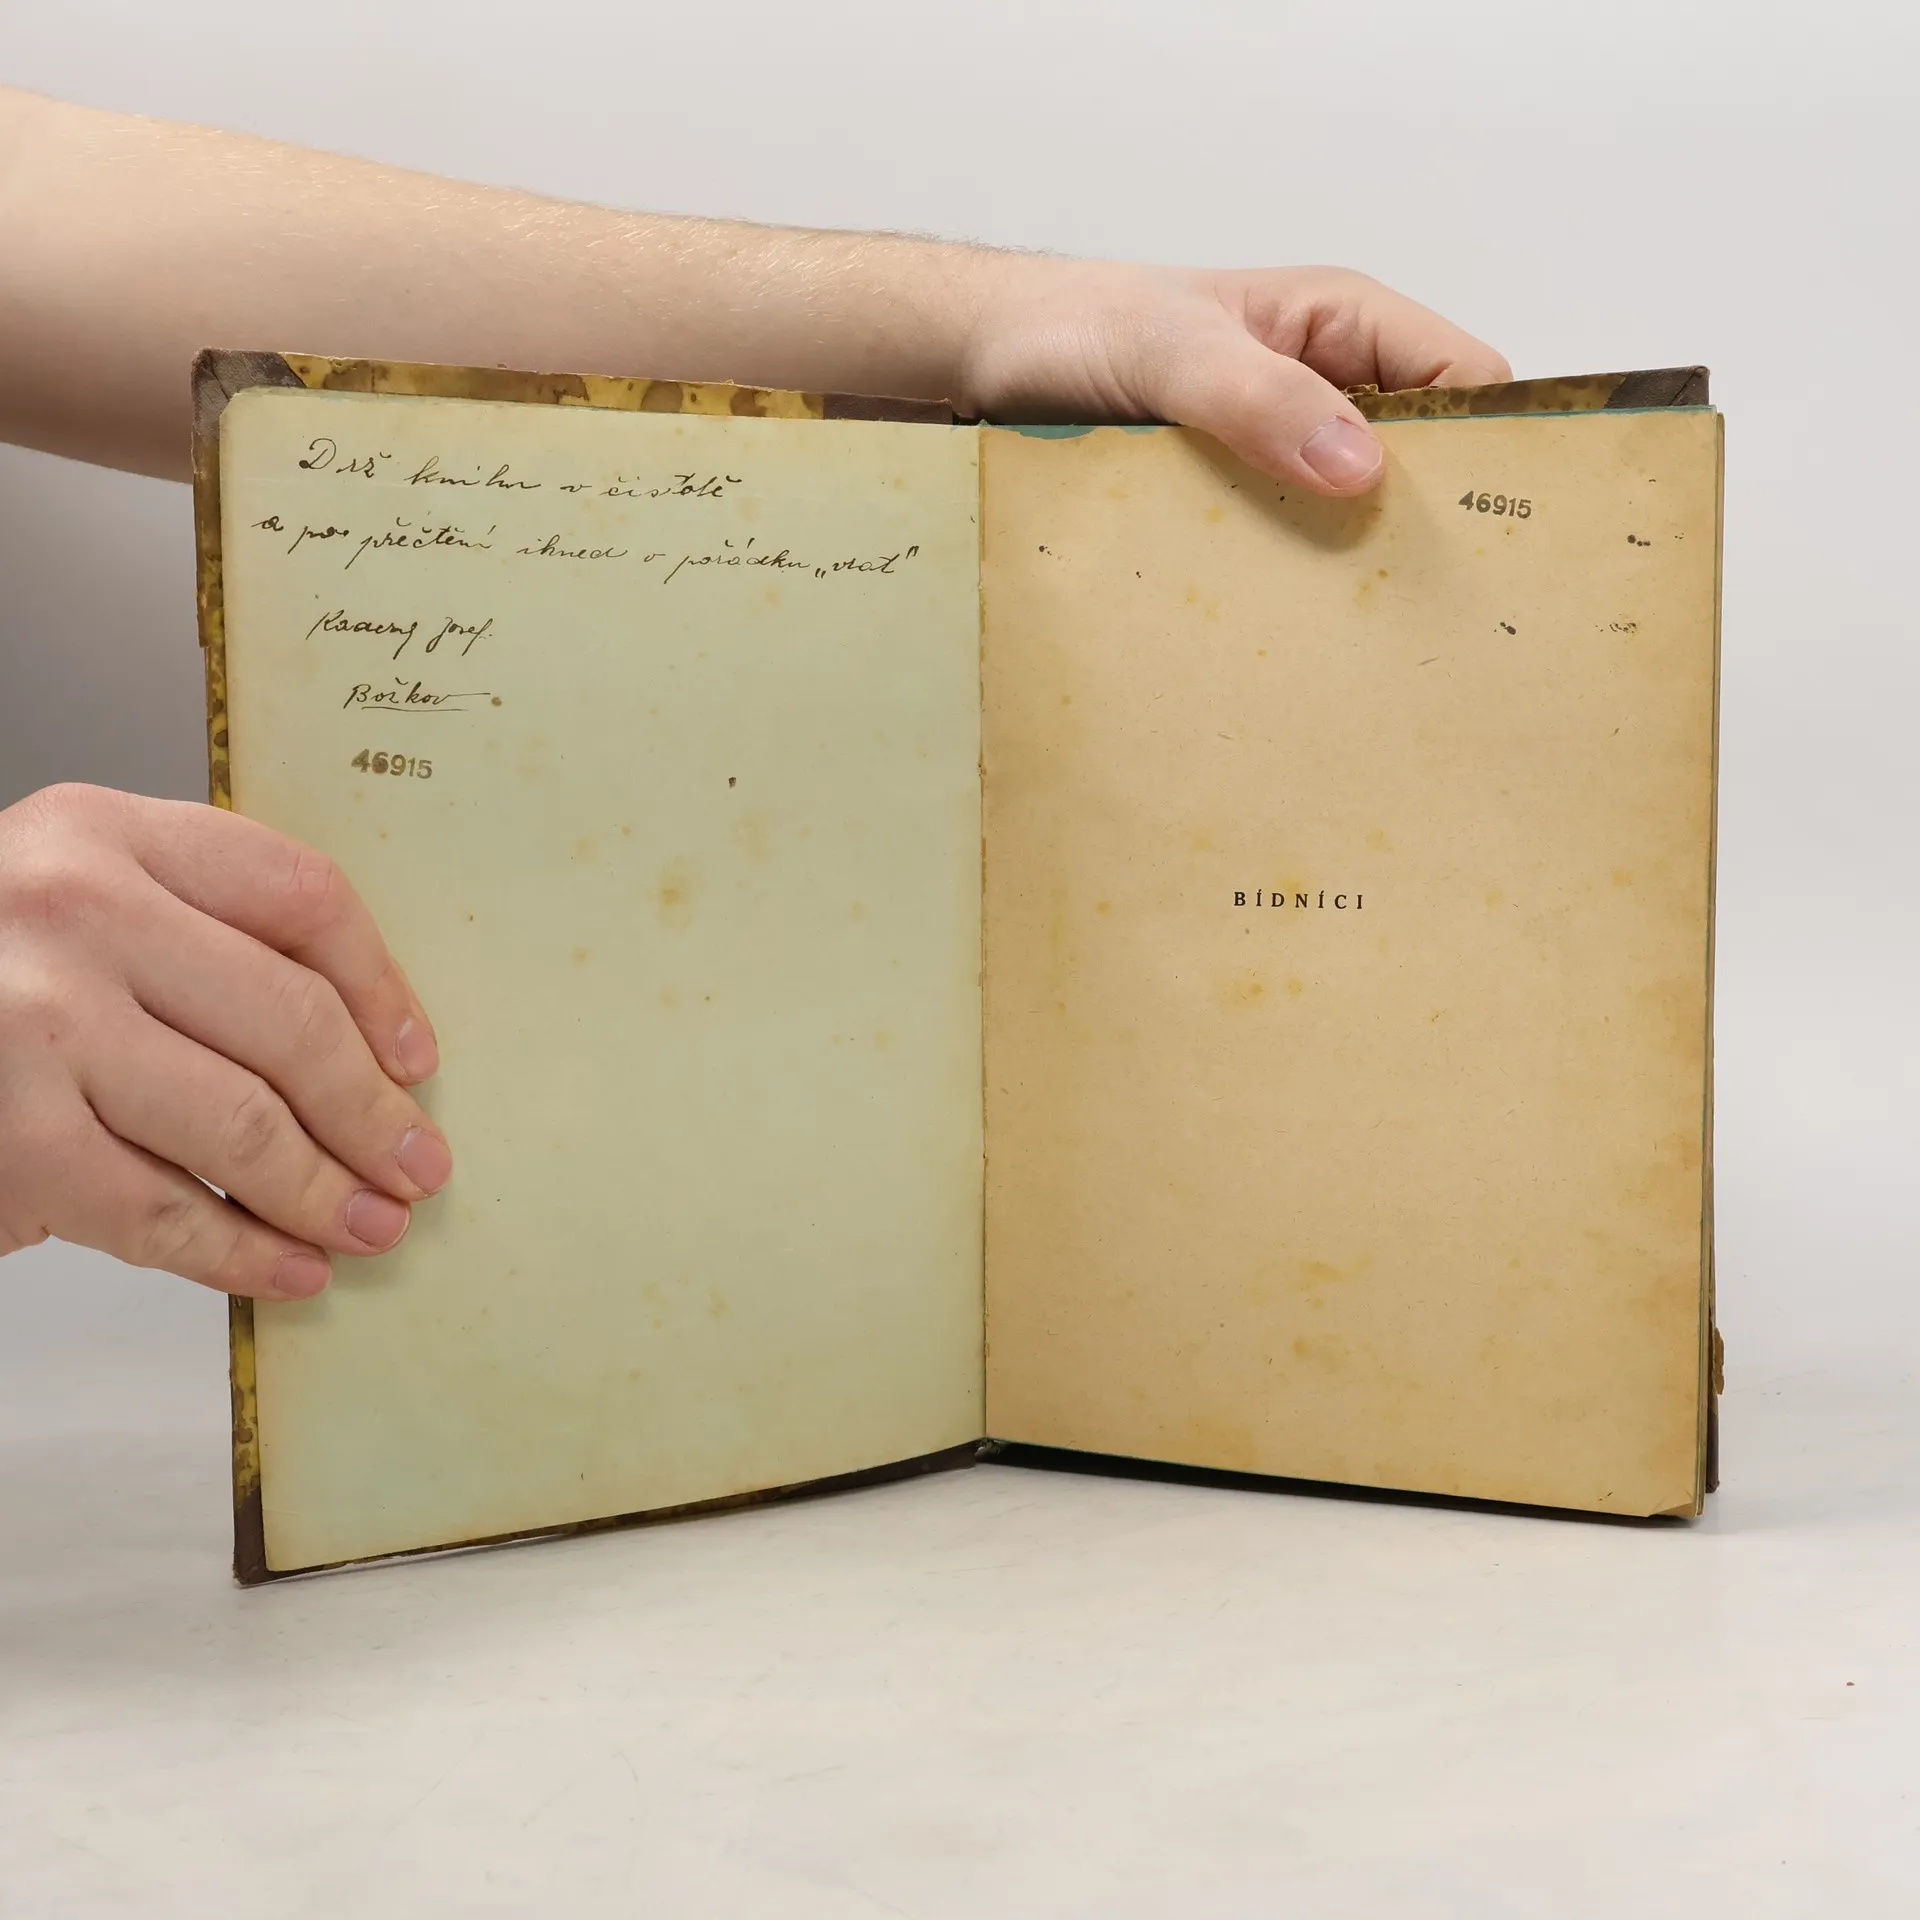 Drž knihu v čistotě
a po přečtění ihned v pořádku „vrať"
Josef.
Božkov
46915
46915
BÍDNÍCI